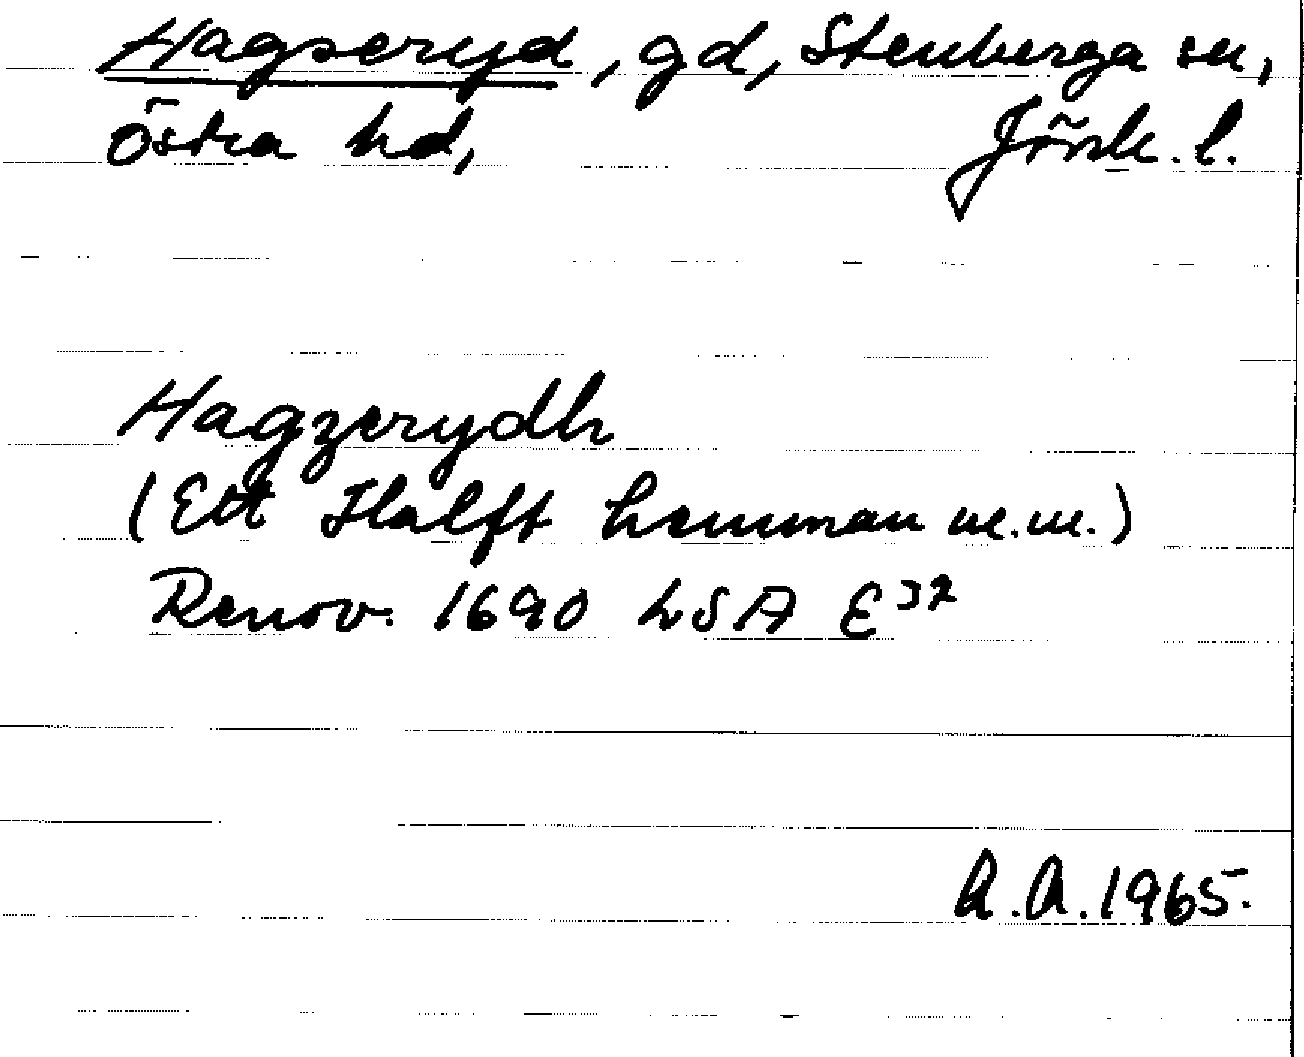 Hagseryd, gd, Stenberga sn,
Östra hd, Jönk. l.
Hagzerydh
(Ett Halft hemman m.m.)
Renov. 1690 LSA E 37
A.A. 1965.